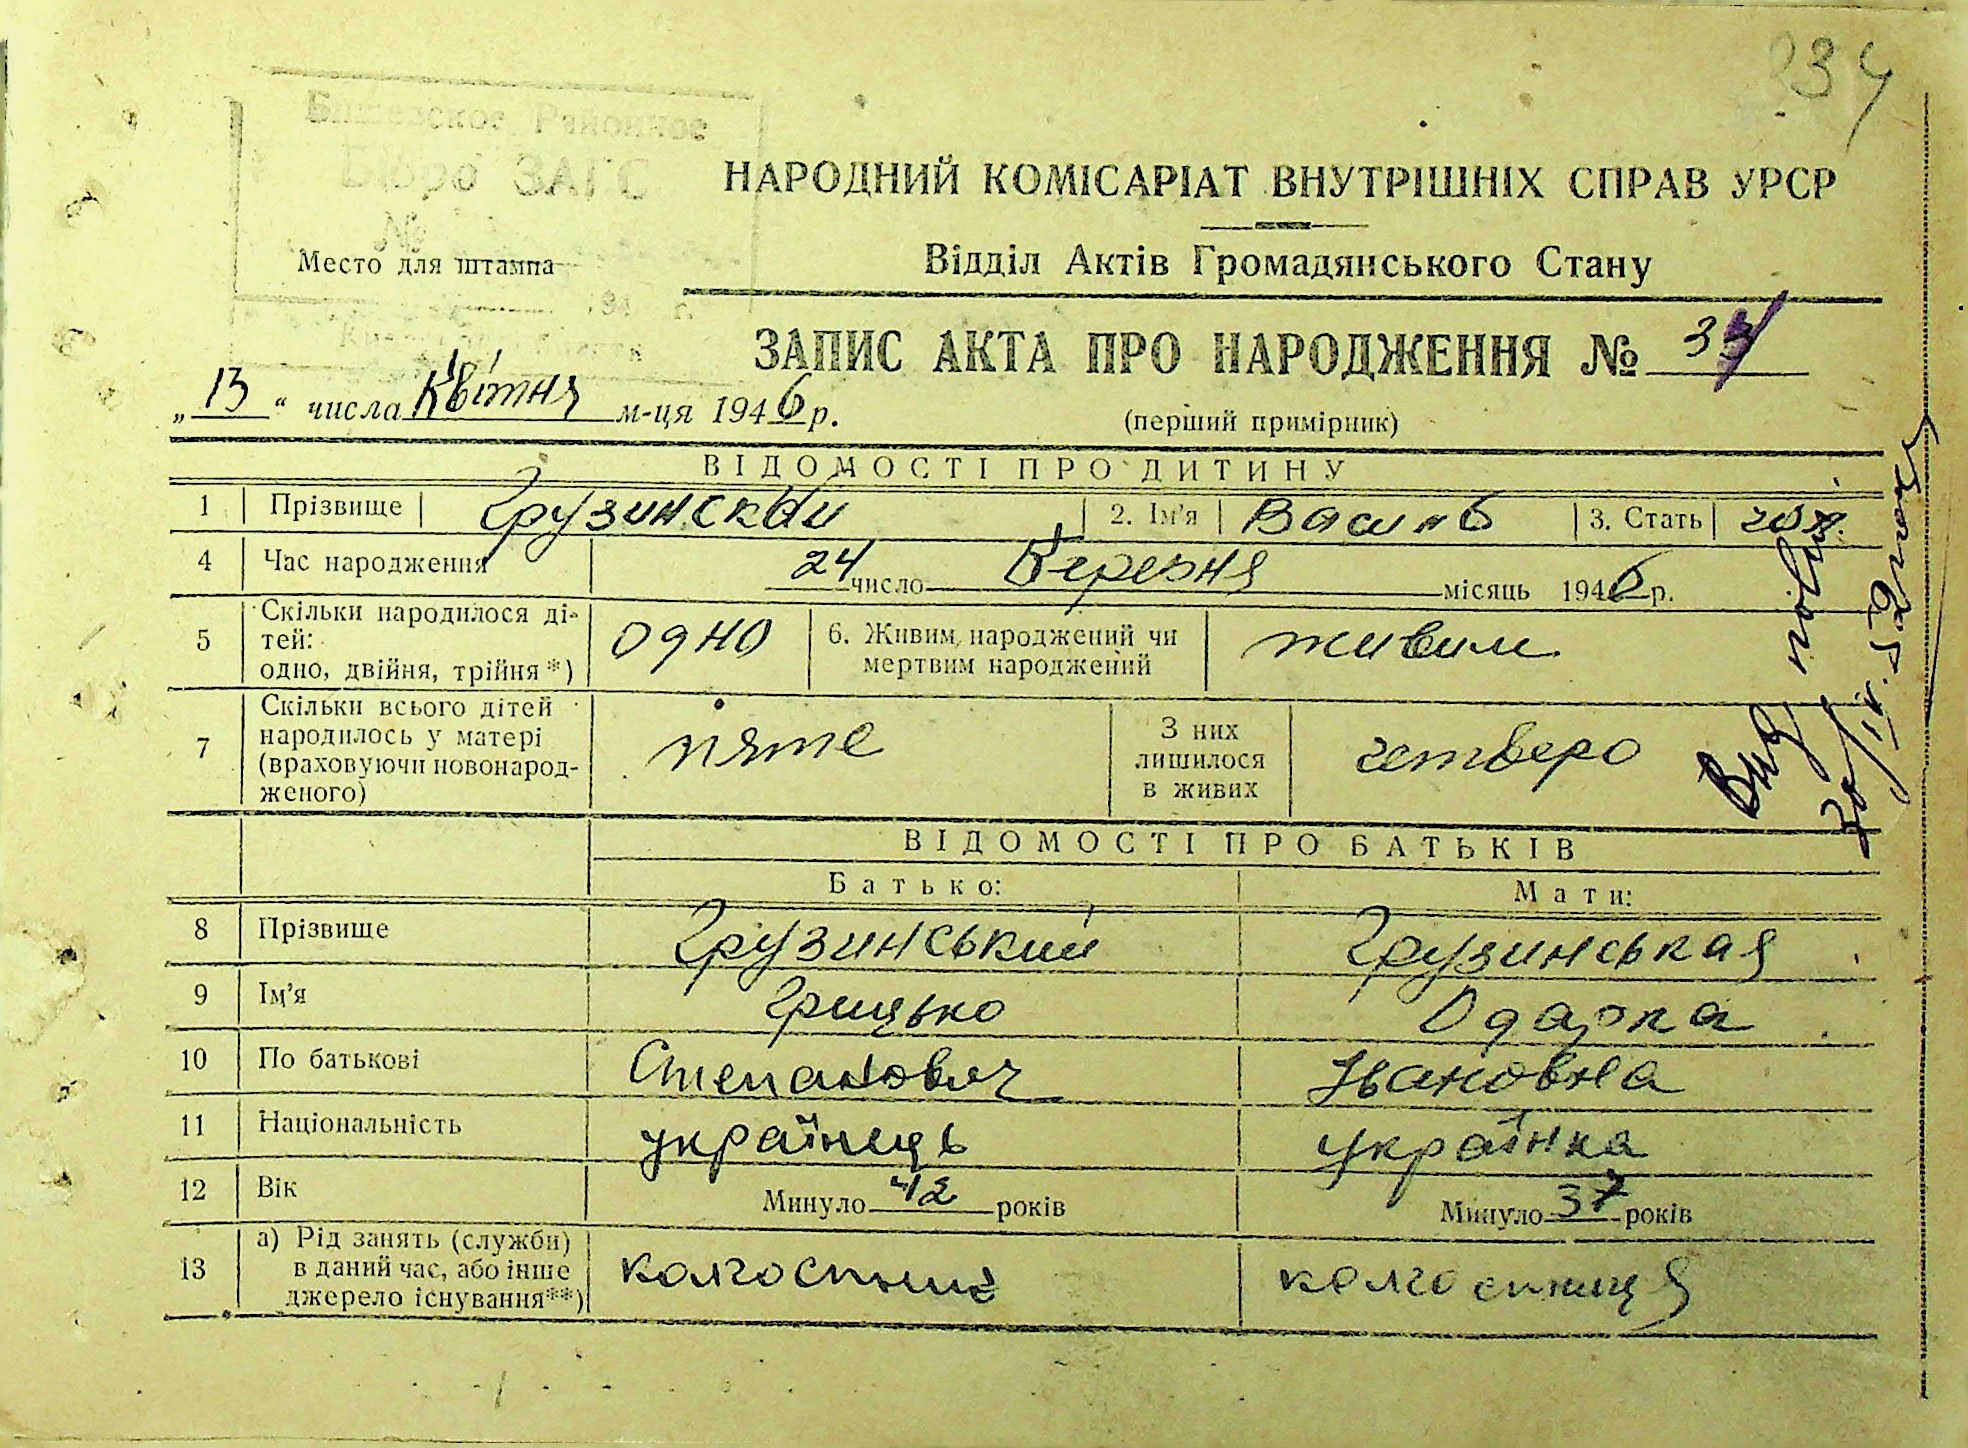 34
Районное
Бюро ЗАГС
№
НАРОДНИЙ КОМІСАРІАТ ВНУТРІШНІХ СПРАВ УРСР
Место для штампа
Відділ Актів Громадянського Стану
194 г.
ЗАПИС АКТА ПРО НАРОДЖЕННЯ №
„13“ числа Квітня м-ця 1946 р.
(перший примірник)
ВІДОМОСТІ ПРО ДИТИНУ
1 Прізвище Грузинский 2. Ім'я Василь 3. Стать чол.
4 Час народження 24 число Березня місяць 1946 р.
5 Скільки народилося ді-
тей:
одно, двійня, трійня *) одно 6. Живим народжений чи
мертвим народжений живим
7 Скільки всього дітей
народилось у матері
(враховуючи новонарод-
женого) пяте З них
лишилося
в живих четверо
ВІДОМОСТІ ПРО БАТЬКІВ
Батько: Мати:
8 Прізвище Грузинський Грузинськая
9 Ім'я Грицько Одарка
10 По батькові Степанович Івановна
11 Національність українець українка
12 Вік Минуло 42 років Минуло 37 років
13 а) Рід занять (служби)
в даний час, або інше
джерело існування**) колгоспник колгоспниця